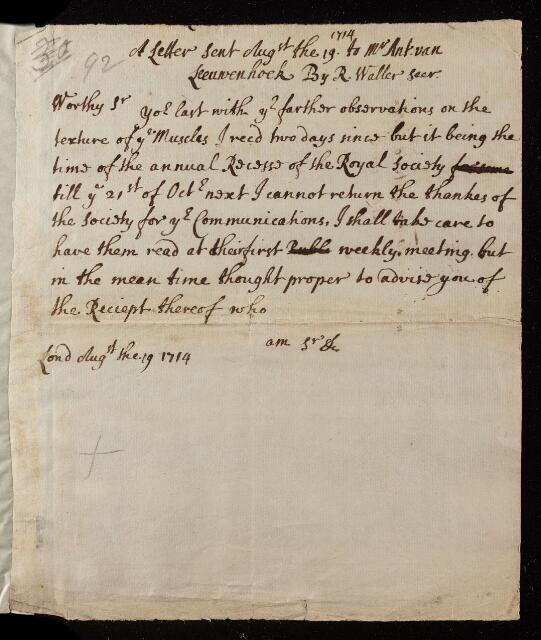 92
A Letter Sent Augst the 19. 1714 to Mr Ant. van
Leeuwenhoek By R. Waller Secr.
Worthy Sr yor last with yr farther observations on the
texture of ye Muscles I recd two days since but it being the
time of the annual Recesse of the Royal Society
till ye 21st of Octr next I cannot return the thankes of
the Society for yr Communications, I shall take care to
have them read at their first Publ weekly meeting. but
in the mean time thought proper to advise you of
the Reciept thereof who
am Sr &c
Lond Augst the 19 1714